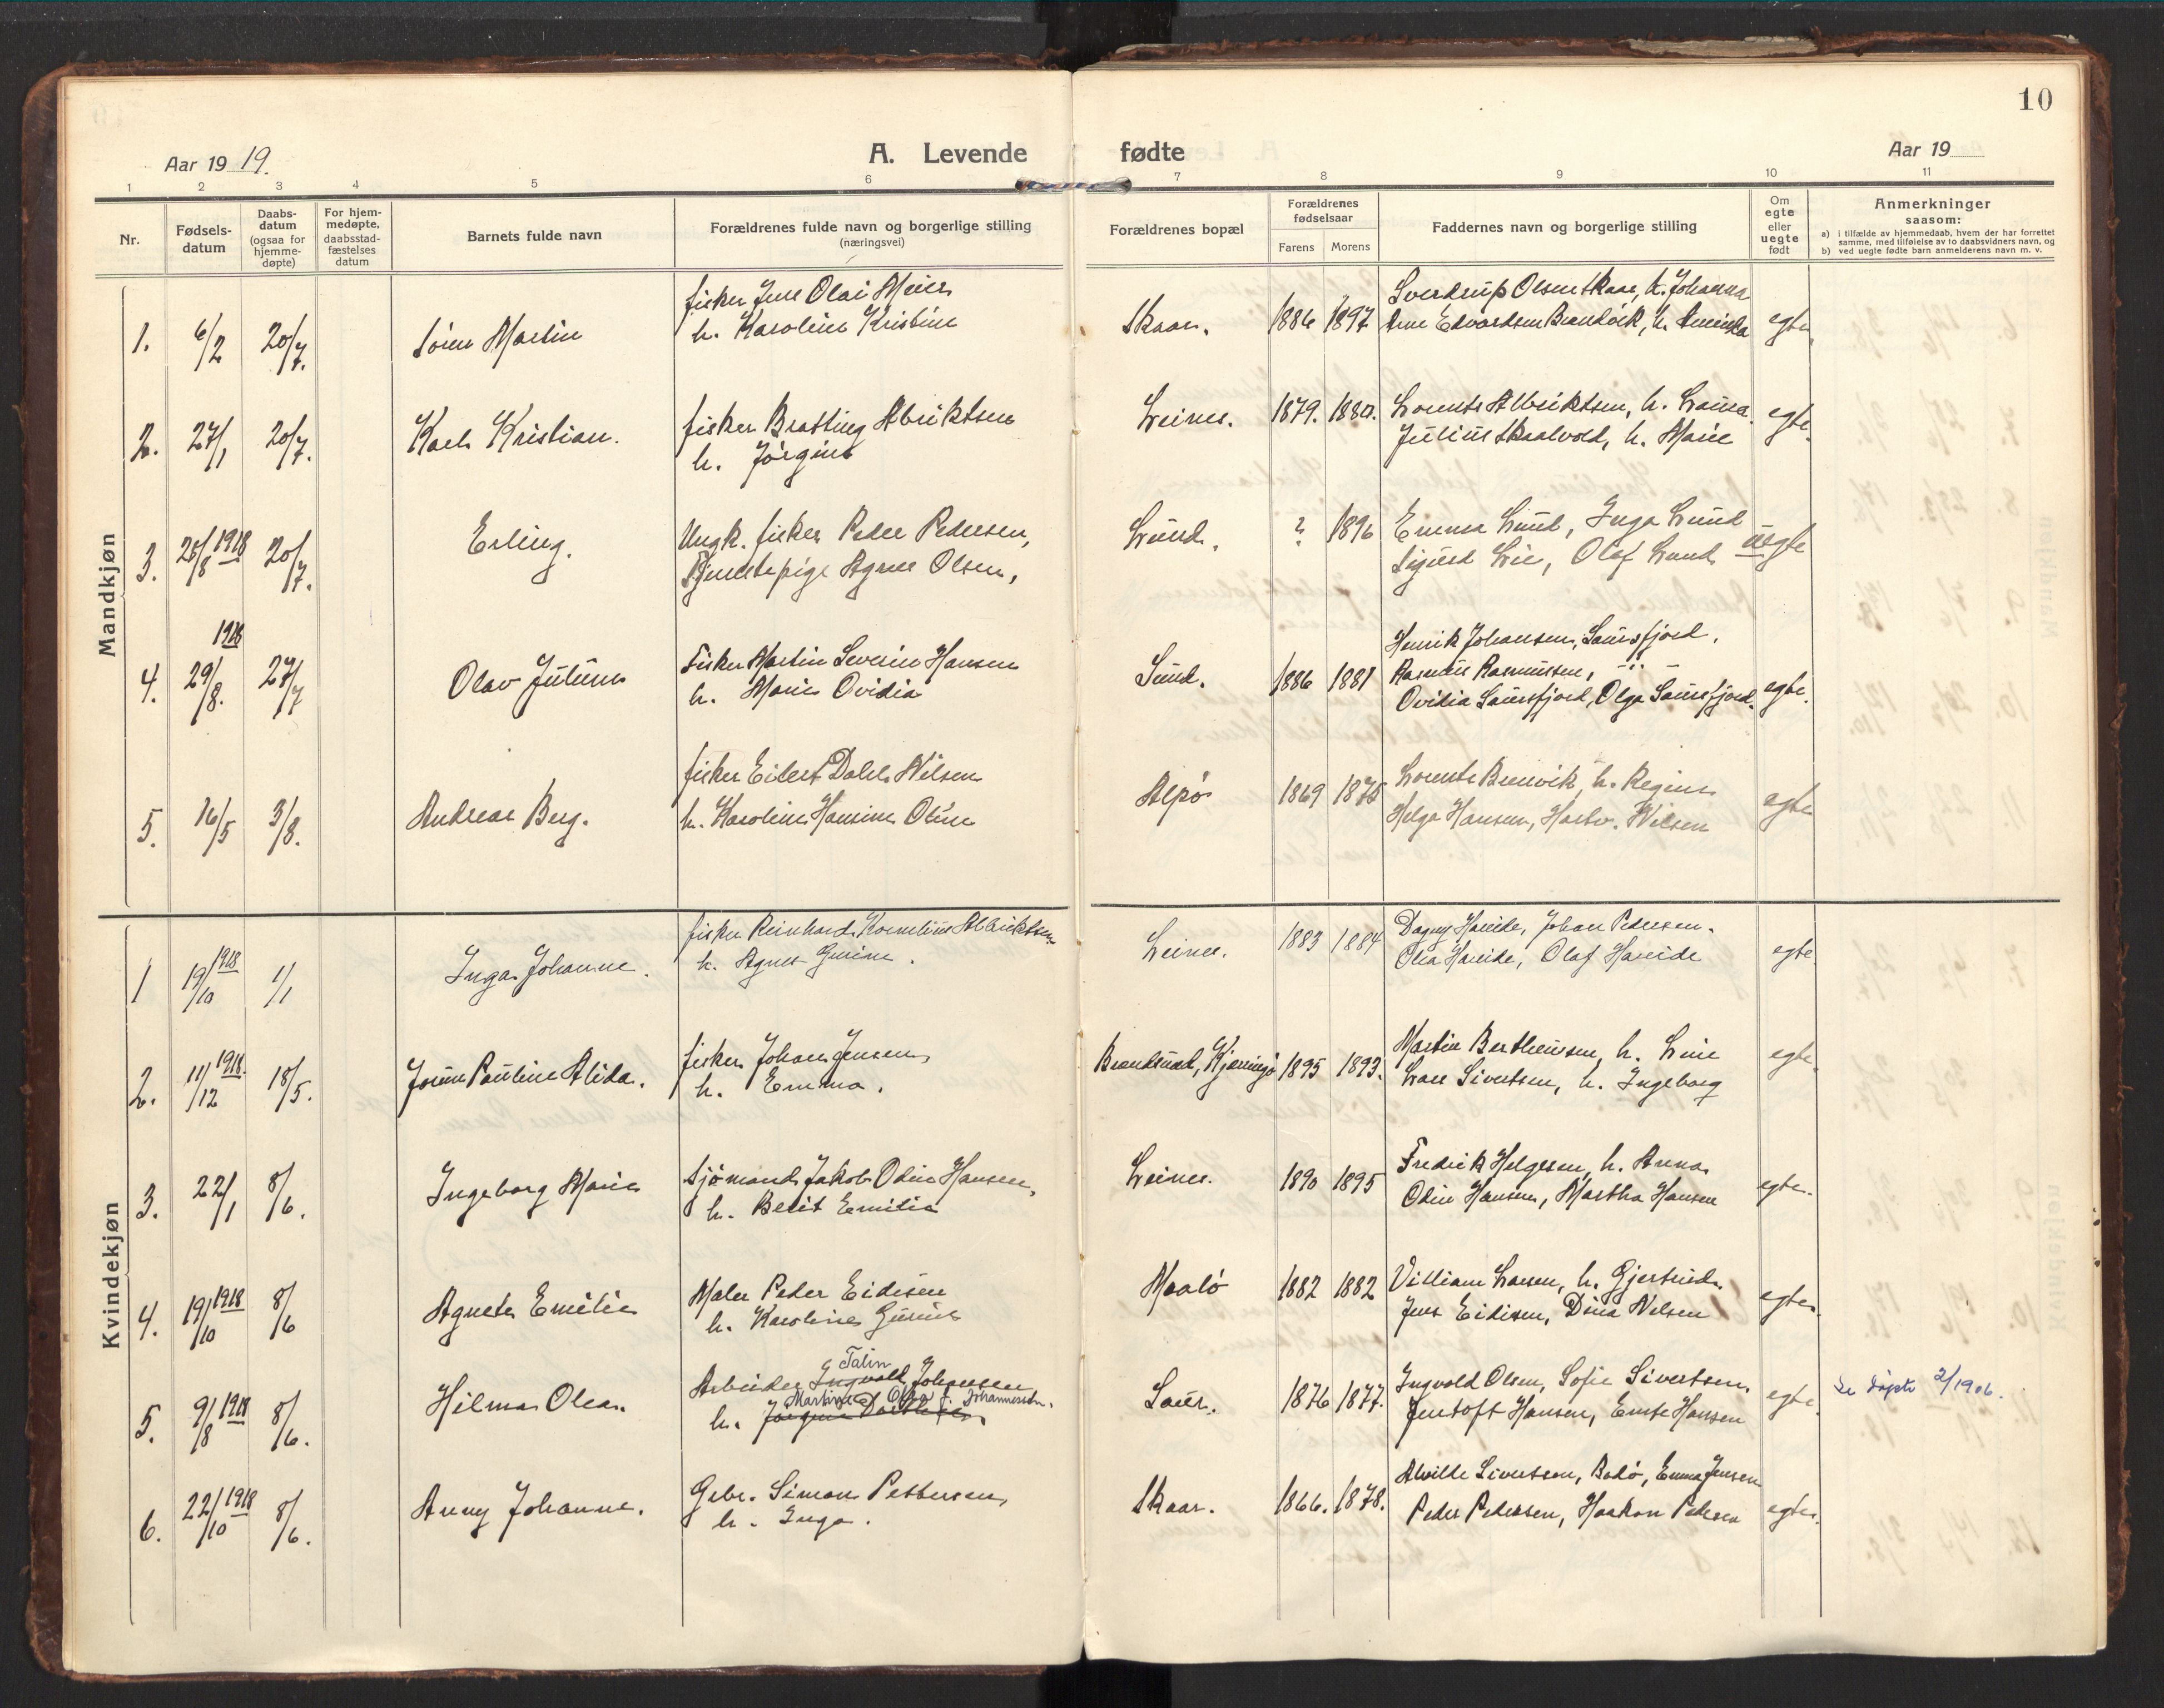 10
Aar 1919.
A. Levende fødte
Aar 19
1 2 3 4 5 6 7 8 9 10 11
Nr.
Fødsels-
datum
Daabs-
datum
(ogsaa for
hjemme-
døpte)
For hjem-
medøpte,
daabsstad-
fæstelses
datum
Barnets fulde navn
Forældrenes fulde navn og borgerlige stilling
(næringsvei)
Forældrenes bopæl
Forældrenes
fødselsaar
Farens Morens
Faddernes navn og borgerlige stilling
Om
egte
eller
uegte
født
Anmerkninger
saasom:
a) i tilfælde av hjemmedaab, hvem der har forrettet
samme, med tilføielse av to daabsvidners navn, og
b) ved uegte fødte barn anmelderens navn m. v.
Mandkjøn
1. 6/2 20/7. Sören Martin
fisker Jens Olai Meier
h. Karoline Kristine
Skaar. 1886 1897
Sverdrup Olsen Skaar, h. Johanna
Arne Edvardsen Brandvik, h.
egte.
2. 27/1 20/7. Karl Kristian.
fisker Bratting Albriktsen
h. Jörgine
Leines. 1879. 1880.
Lorents Albriktsen, h. Laura
Julius Skaalvold, h. Marie
egte.
3. 25/8 1918 20/7. Erling.
Ungk. fisker Peder Pedersen,
Tjenestepige Agnes Olsen,
Lund. ? 1896
Emma Lund, Inga Lund
Sigurd Lie, Olaf Lund
uegte
4. 1918 29/8. 27/7 Olav Julius
Fisker Martin Severin Hansen
h. Marie Ovidia
Sund. 1886 1881
Henrik Johansen, Saursfjord.
Rasmus Rasmussen, — " —
Ovidia Saursfjord, Olga Saursfjord.
egte.
5. 16/5 3/8. Andreas Berg.
fisker Eilert Dahl Nilsen
h. Karoline Hansine Oline
Alpö 1869 1875
Lorents Brennvik, h. Regine
Helga Hansen, Hartv. Nilsen
egte
Kvindekjøn
1 19/10 1918 1/1 Inga Johanne.
fisker Reinhard Kornelius Albriktsen
h. Agnes Gurine.
Leines. 1883 1884
Dagny Hareide, Johan Pedersen.
Olea Hareide, Olaf Hareide
egte.
2. 11/12 1918. 18/5. Jorunn Pauline Alida.
fisker Johan Jensen,
h. Emma.
Brandsund, Kjerringö 1895 1893.
Martin Bertheussen, h. Line
Lars Sivertsen, h. Ingeborg
egte.
3. 22/1 8/6. Ingeborg Marie
Sjömand Jakob Odin Hansen,
h. Berit Emilie
Leines. 1890 1895
Fredrik Helgesen, h. Anna
Odin Hansen, Martha Hansen
egte.
4. 19/10 1918 8/6 Agnete Emilie
Maler Peder Eidisen
h. Karoline Gurine
Maalö 1882 1882
Villiam Larsen, h. Gjertrud.
Jens Eidisen, Dina Nilsen
egte.
5. 9/8 1918 8/6. Hilma Olea.
Talin
Arbeider Ingvald Johansen
Martine Olsa f. Johannessen.
h. Jörgine
Saur. 1876 1877.
Ingvald Olsen, Sofie Sivertsen,
Jentoft Hansen, Emte Hansen
egte.
Se döpte 2/1906.
6. 22/10 1918 8/6. Anny Johanne.
Gbr. Simon Pettersen,
h. Inga.
Skaar. 1866. 1878.
Alvilde Sivertsen, Bodö, Emma Jensen
Peder Pedersen, Haakon Pedersen
egte.